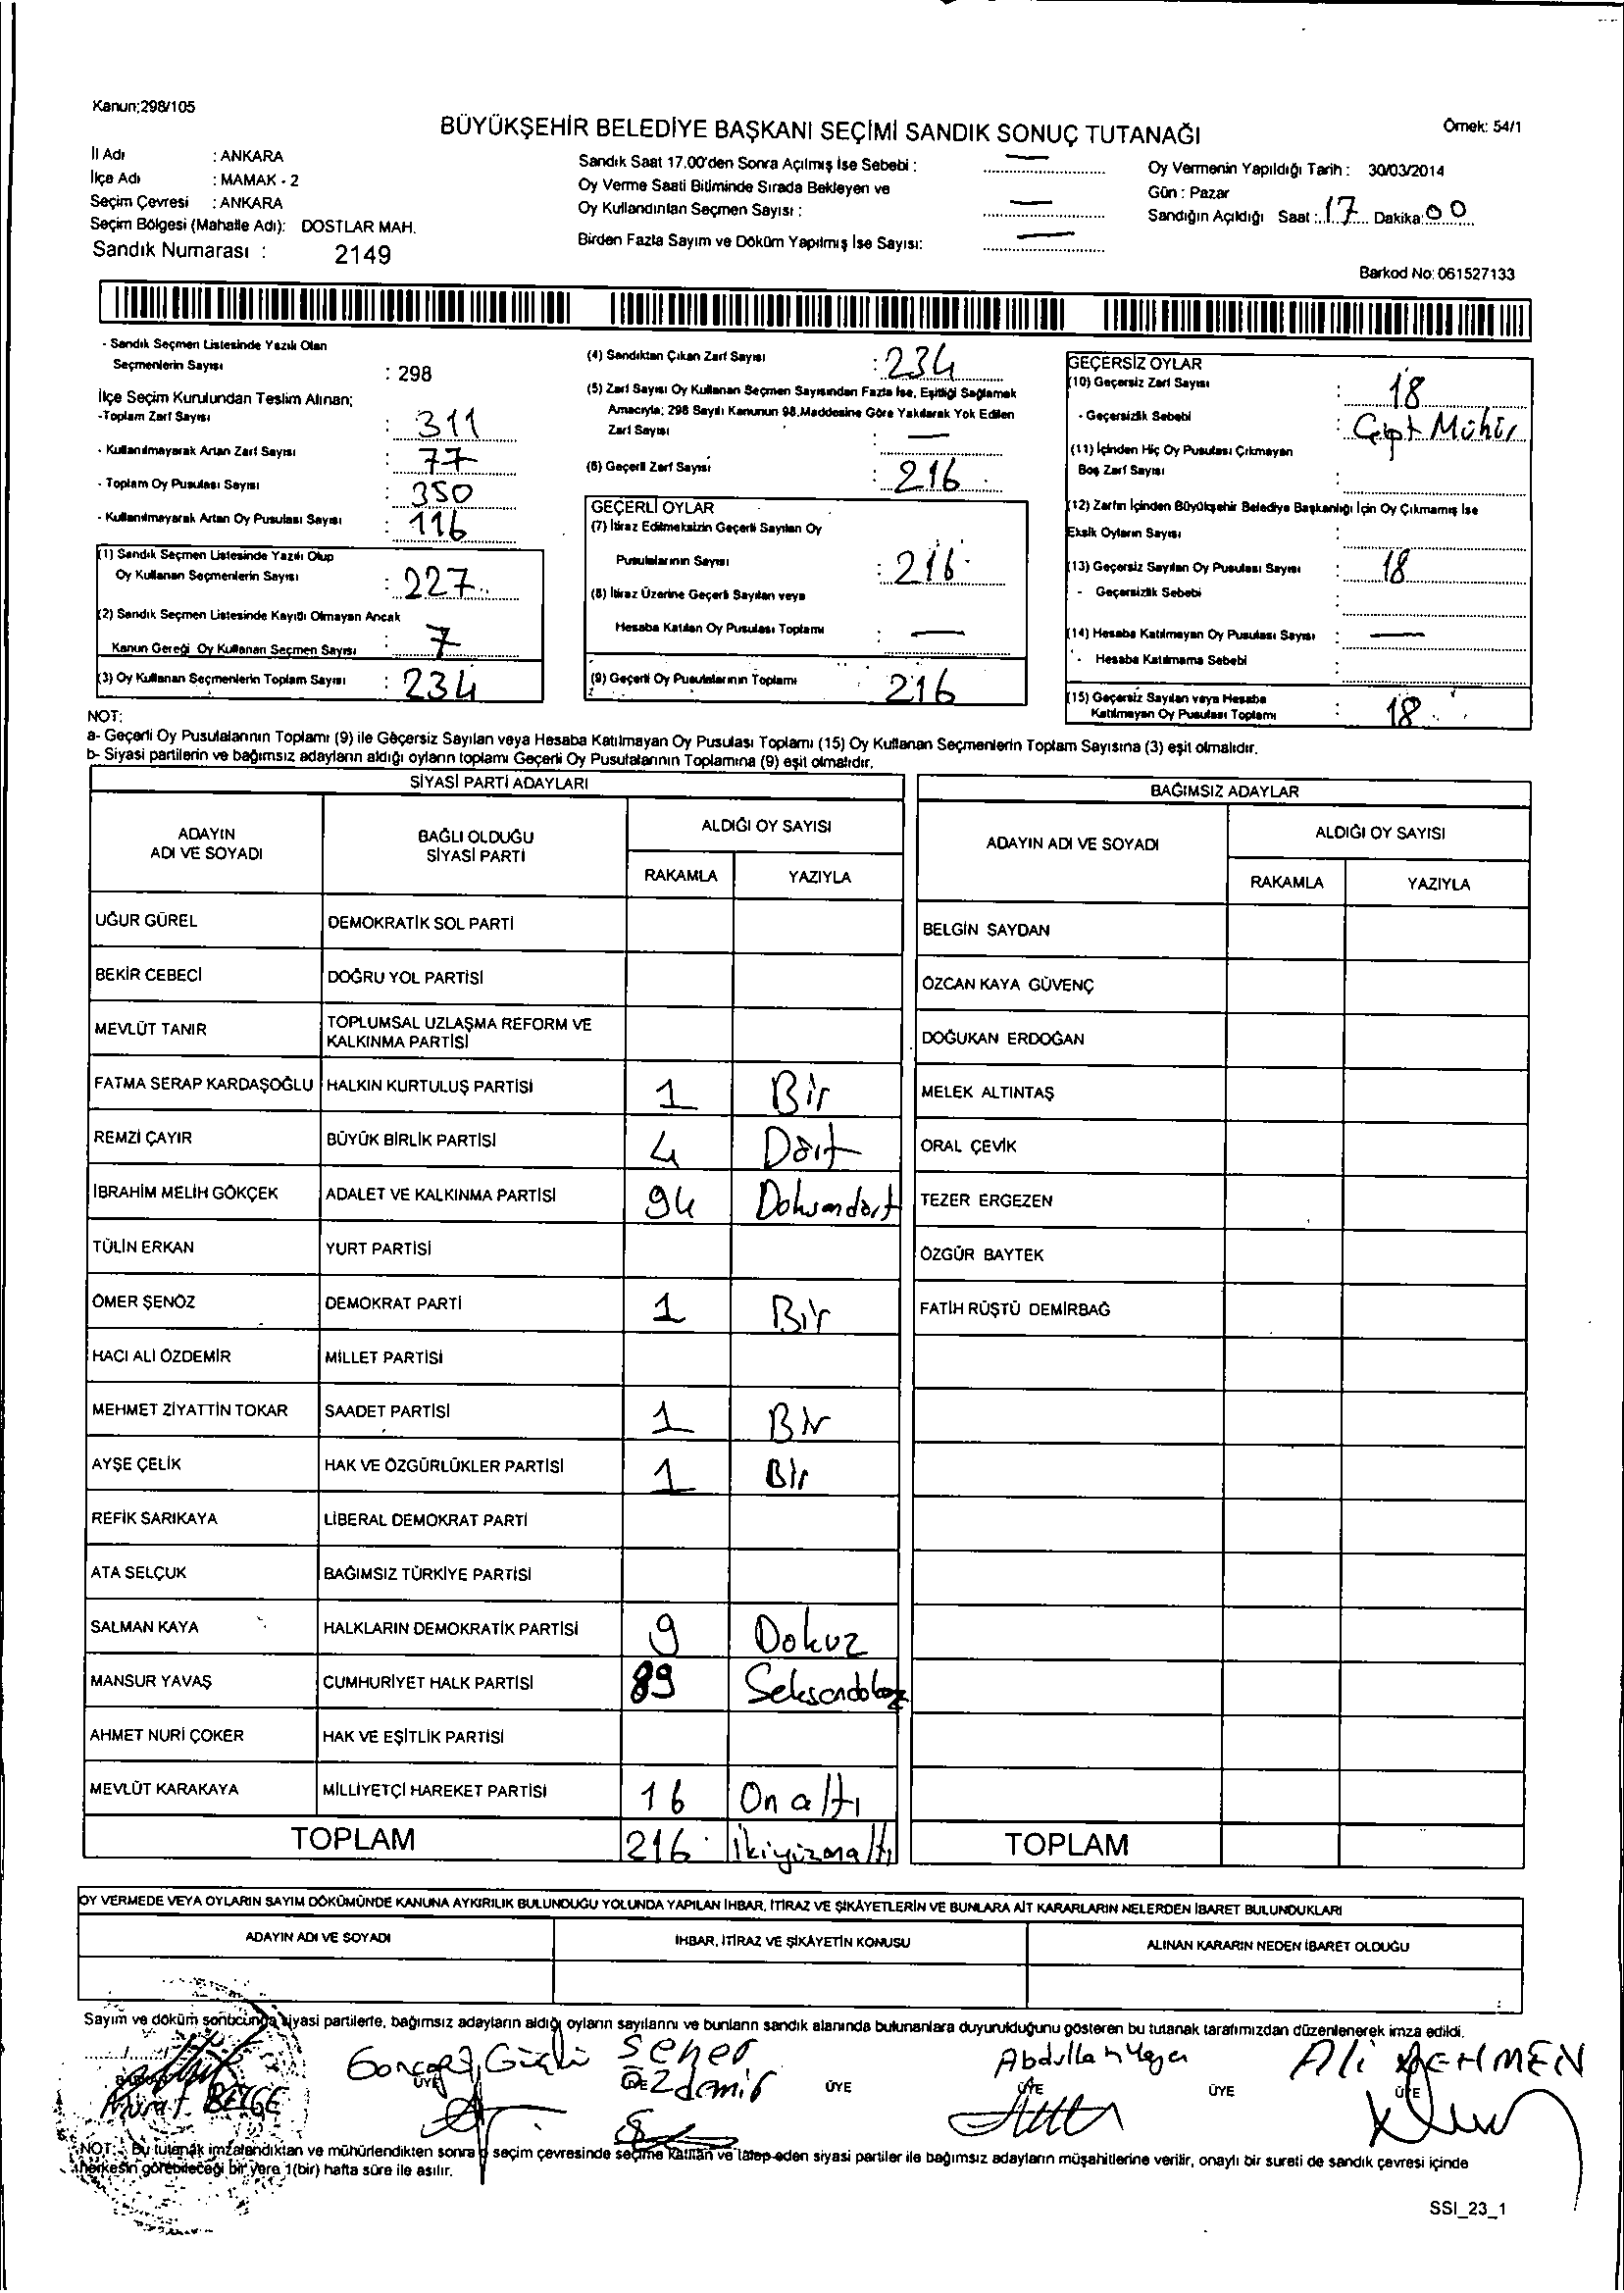 Kanun:298/105
BÜYÜKŞEHİR BELEDİYE BAŞKANI SEÇİMİ SANDIK SONUÇ TUTANAĞI
Örnek: 54/1
İl Adı : ANKARA
İlçe Adı : MAMAK - 2
Seçim Çevresi : ANKARA
Seçim Bölgesi (Mahalle Adı): DOSTLAR MAH.
Sandık Numarası : 2149
Sandık Saat 17.00'den Sonra Açılmış İse Sebebi : —
Oy Verme Saati Bitiminde Sırada Bekleyen ve
Oy Kullandırılan Seçmen Sayısı : —
Birden Fazla Sayım ve Döküm Yapılmış İse Sayısı: —
Oy Vermenin Yapıldığı Tarih : 30/03/2014
Gün : Pazar
Sandığın Açıldığı Saat : 17 Dakika: 00
Barkod No: 061527133
- Sandık Seçmen Listesinde Yazılı Olan
Seçmenlerin Sayısı : 298
İlçe Seçim Kurulundan Teslim Alınan;
-Toplam Zarf Sayısı : 311
- Kullanılmayarak Artan Zarf Sayısı : 77
- Toplam Oy Pusulası Sayısı : 350
- Kullanılmayarak Artan Oy Pusulası Sayısı : 116
(1) Sandık Seçmen Listesinde Yazılı Olup
Oy Kullanan Seçmenlerin Sayısı : 227
(2) Sandık Seçmen Listesinde Kayıtlı Olmayan Ancak
Kanun Gereği Oy Kullanan Seçmen Sayısı : 7
(3) Oy Kullanan Seçmenlerin Toplam Sayısı : 234
(4) Sandıktan Çıkan Zarf Sayısı : 234
(5) Zarf Sayısı Oy Kullanan Seçmen Sayısından Fazla İse, Eşitliği Sağlamak
Amacıyla; 298 Sayılı Kanunun 98.Maddesine Göre Yakılarak Yok Edilen
Zarf Sayısı : —
(6) Geçerli Zarf Sayısı : 216
GEÇERLİ OYLAR
(7) İtiraz Edilmeksizin Geçerli Sayılan Oy
Pusulalarının Sayısı : 216
(8) İtiraz Üzerine Geçerli Sayılan veya
Hesaba Katılan Oy Pusulası Toplamı : —
(9) Geçerli Oy Pusulalarının Toplamı : 216
GEÇERSİZ OYLAR
(10) Geçersiz Zarf Sayısı : 18
- Geçersizlik Sebebi : Çipt Mühür
(11) İçinden Hiç Oy Pusulası Çıkmayan
Boş Zarf Sayısı :
(12) Zarfın İçinden Büyükşehir Belediye Başkanlığı İçin Oy Çıkmamış İse
Eksik Oyların Sayısı :
(13) Geçersiz Sayılan Oy Pusulası Sayısı : 18
- Geçersizlik Sebebi :
(14) Hesaba Katılmayan Oy Pusulası Sayısı : —
- Hesaba Katılmama Sebebi :
(15) Geçersiz Sayılan veya Hesaba
Katılmayan Oy Pusulası Toplamı : 18
NOT:
a- Geçerli Oy Pusulalarının Toplamı (9) ile Geçersiz Sayılan veya Hesaba Katılmayan Oy Pusulası Toplamı (15) Oy Kullanan Seçmenlerin Toplam Sayısına (3) eşit olmalıdır.
b- Siyasi partilerin ve bağımsız adayların aldığı oyların toplamı Geçerli Oy Pusulalarının Toplamına (9) eşit olmalıdır.
SİYASİ PARTİ ADAYLARI
ADAYIN ADI VE SOYADI
BAĞLI OLDUĞU SİYASİ PARTİ
ALDIĞI OY SAYISI
RAKAMLA YAZIYLA
UĞUR GÜREL DEMOKRATİK SOL PARTİ
BEKİR CEBECİ DOĞRU YOL PARTİSİ
MEVLÜT TANIR TOPLUMSAL UZLAŞMA REFORM VE
KALKINMA PARTİSİ
FATMA SERAP KARDAŞOĞLU HALKIN KURTULUŞ PARTİSİ 1 Bir
REMZİ ÇAYIR BÜYÜK BİRLİK PARTİSİ 4 Dört
İBRAHİM MELİH GÖKÇEK ADALET VE KALKINMA PARTİSİ 94 Doksandört
TÜLİN ERKAN YURT PARTİSİ
ÖMER ŞENÖZ DEMOKRAT PARTİ 1 Bir
HACI ALİ ÖZDEMİR MİLLET PARTİSİ
MEHMET ZİYATTİN TOKAR SAADET PARTİSİ 1 Bir
AYŞE ÇELİK HAK VE ÖZGÜRLÜKLER PARTİSİ 1 Bir
REFİK SARIKAYA LİBERAL DEMOKRAT PARTİ
ATA SELÇUK BAĞIMSIZ TÜRKİYE PARTİSİ
SALMAN KAYA HALKLARIN DEMOKRATİK PARTİSİ 9 Dokuz
MANSUR YAVAŞ CUMHURİYET HALK PARTİSİ 89 Seksendokuz
AHMET NURİ ÇOKER HAK VE EŞİTLİK PARTİSİ
MEVLÜT KARAKAYA MİLLİYETÇİ HAREKET PARTİSİ 16 On altı
TOPLAM 216 İkiyüzonaltı
BAĞIMSIZ ADAYLAR
ADAYIN ADI VE SOYADI
ALDIĞI OY SAYISI
RAKAMLA YAZIYLA
BELGİN SAYDAN
ÖZCAN KAYA GÜVENÇ
DOĞUKAN ERDOĞAN
MELEK ALTINTAŞ
ORAL ÇEVİK
TEZER ERGEZEN
ÖZGÜR BAYTEK
FATİH RÜŞTÜ DEMİRBAĞ
TOPLAM
OY VERMEDE VEYA OYLARIN SAYIM DÖKÜMÜNDE KANUNA AYKIRILIK BULUNDUĞU YOLUNDA YAPILAN İHBAR, İTİRAZ VE ŞİKÂYETLERİN VE BUNLARA AİT KARARLARIN NELERDEN İBARET BULUNDUKLARI
ADAYIN ADI VE SOYADI İHBAR, İTİRAZ VE ŞİKÂYETİN KONUSU ALINAN KARARIN NEDEN İBARET OLDUĞU
Sayım ve döküm sonucunda siyasi partilerle, bağımsız adayların aldığı oyların sayılarını ve bunların sandık alanında bulunanlara duyurulduğunu gösteren bu tutanak tarafımızdan düzenlenerek imza edildi.
Murat BELGE
Güçlü ÜYE
Seher Özdemir ÜYE
ÜYE
Abdullah ÜYE
ÜYE
Ali ÜYE
NOT: Bu tutanak imzalandıktan ve mühürlendikten sonra o seçim çevresinde seçime katılan ve talep eden siyasi partiler ile bağımsız adayların müşahitlerine verilir, onaylı bir sureti de sandık çevresi içinde
herkesin görebileceği bir yere 1(bir) hafta süre ile asılır.
SSI_23_1